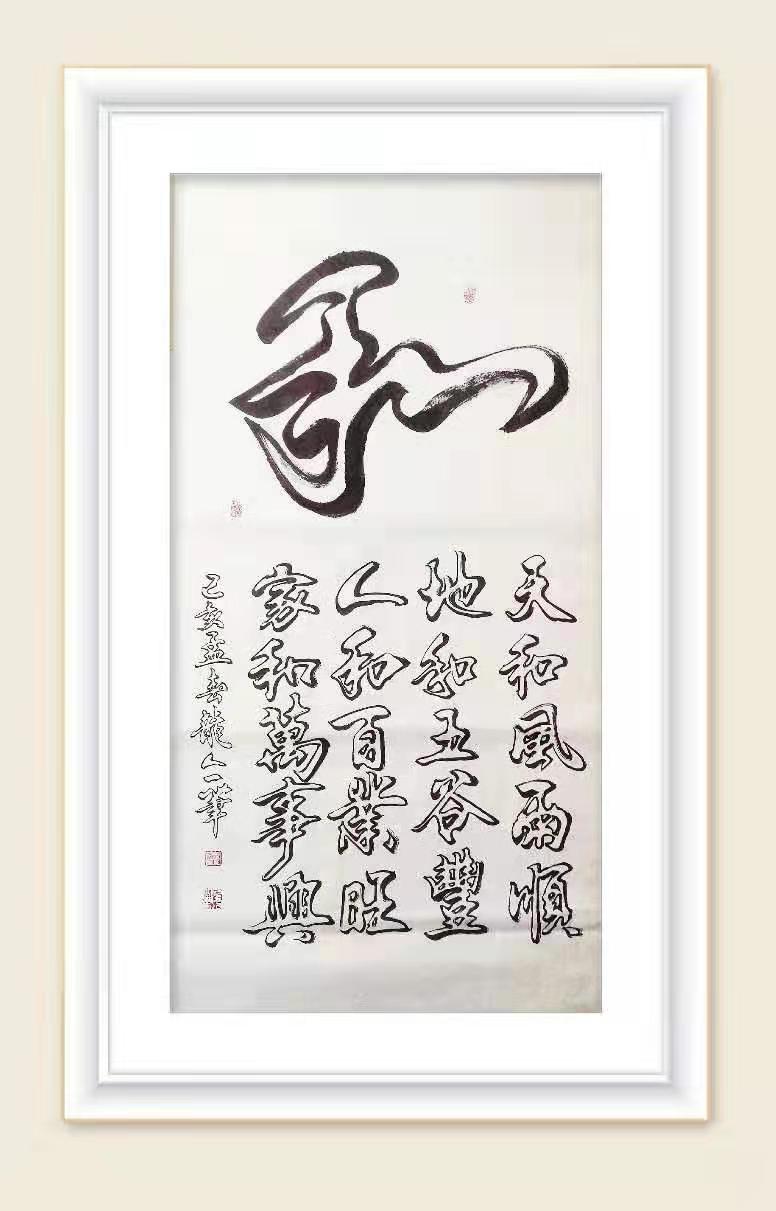 和
天和風雨順
地和五谷豐
人和百業旺
家和萬事興
己亥孟春龍人一筆